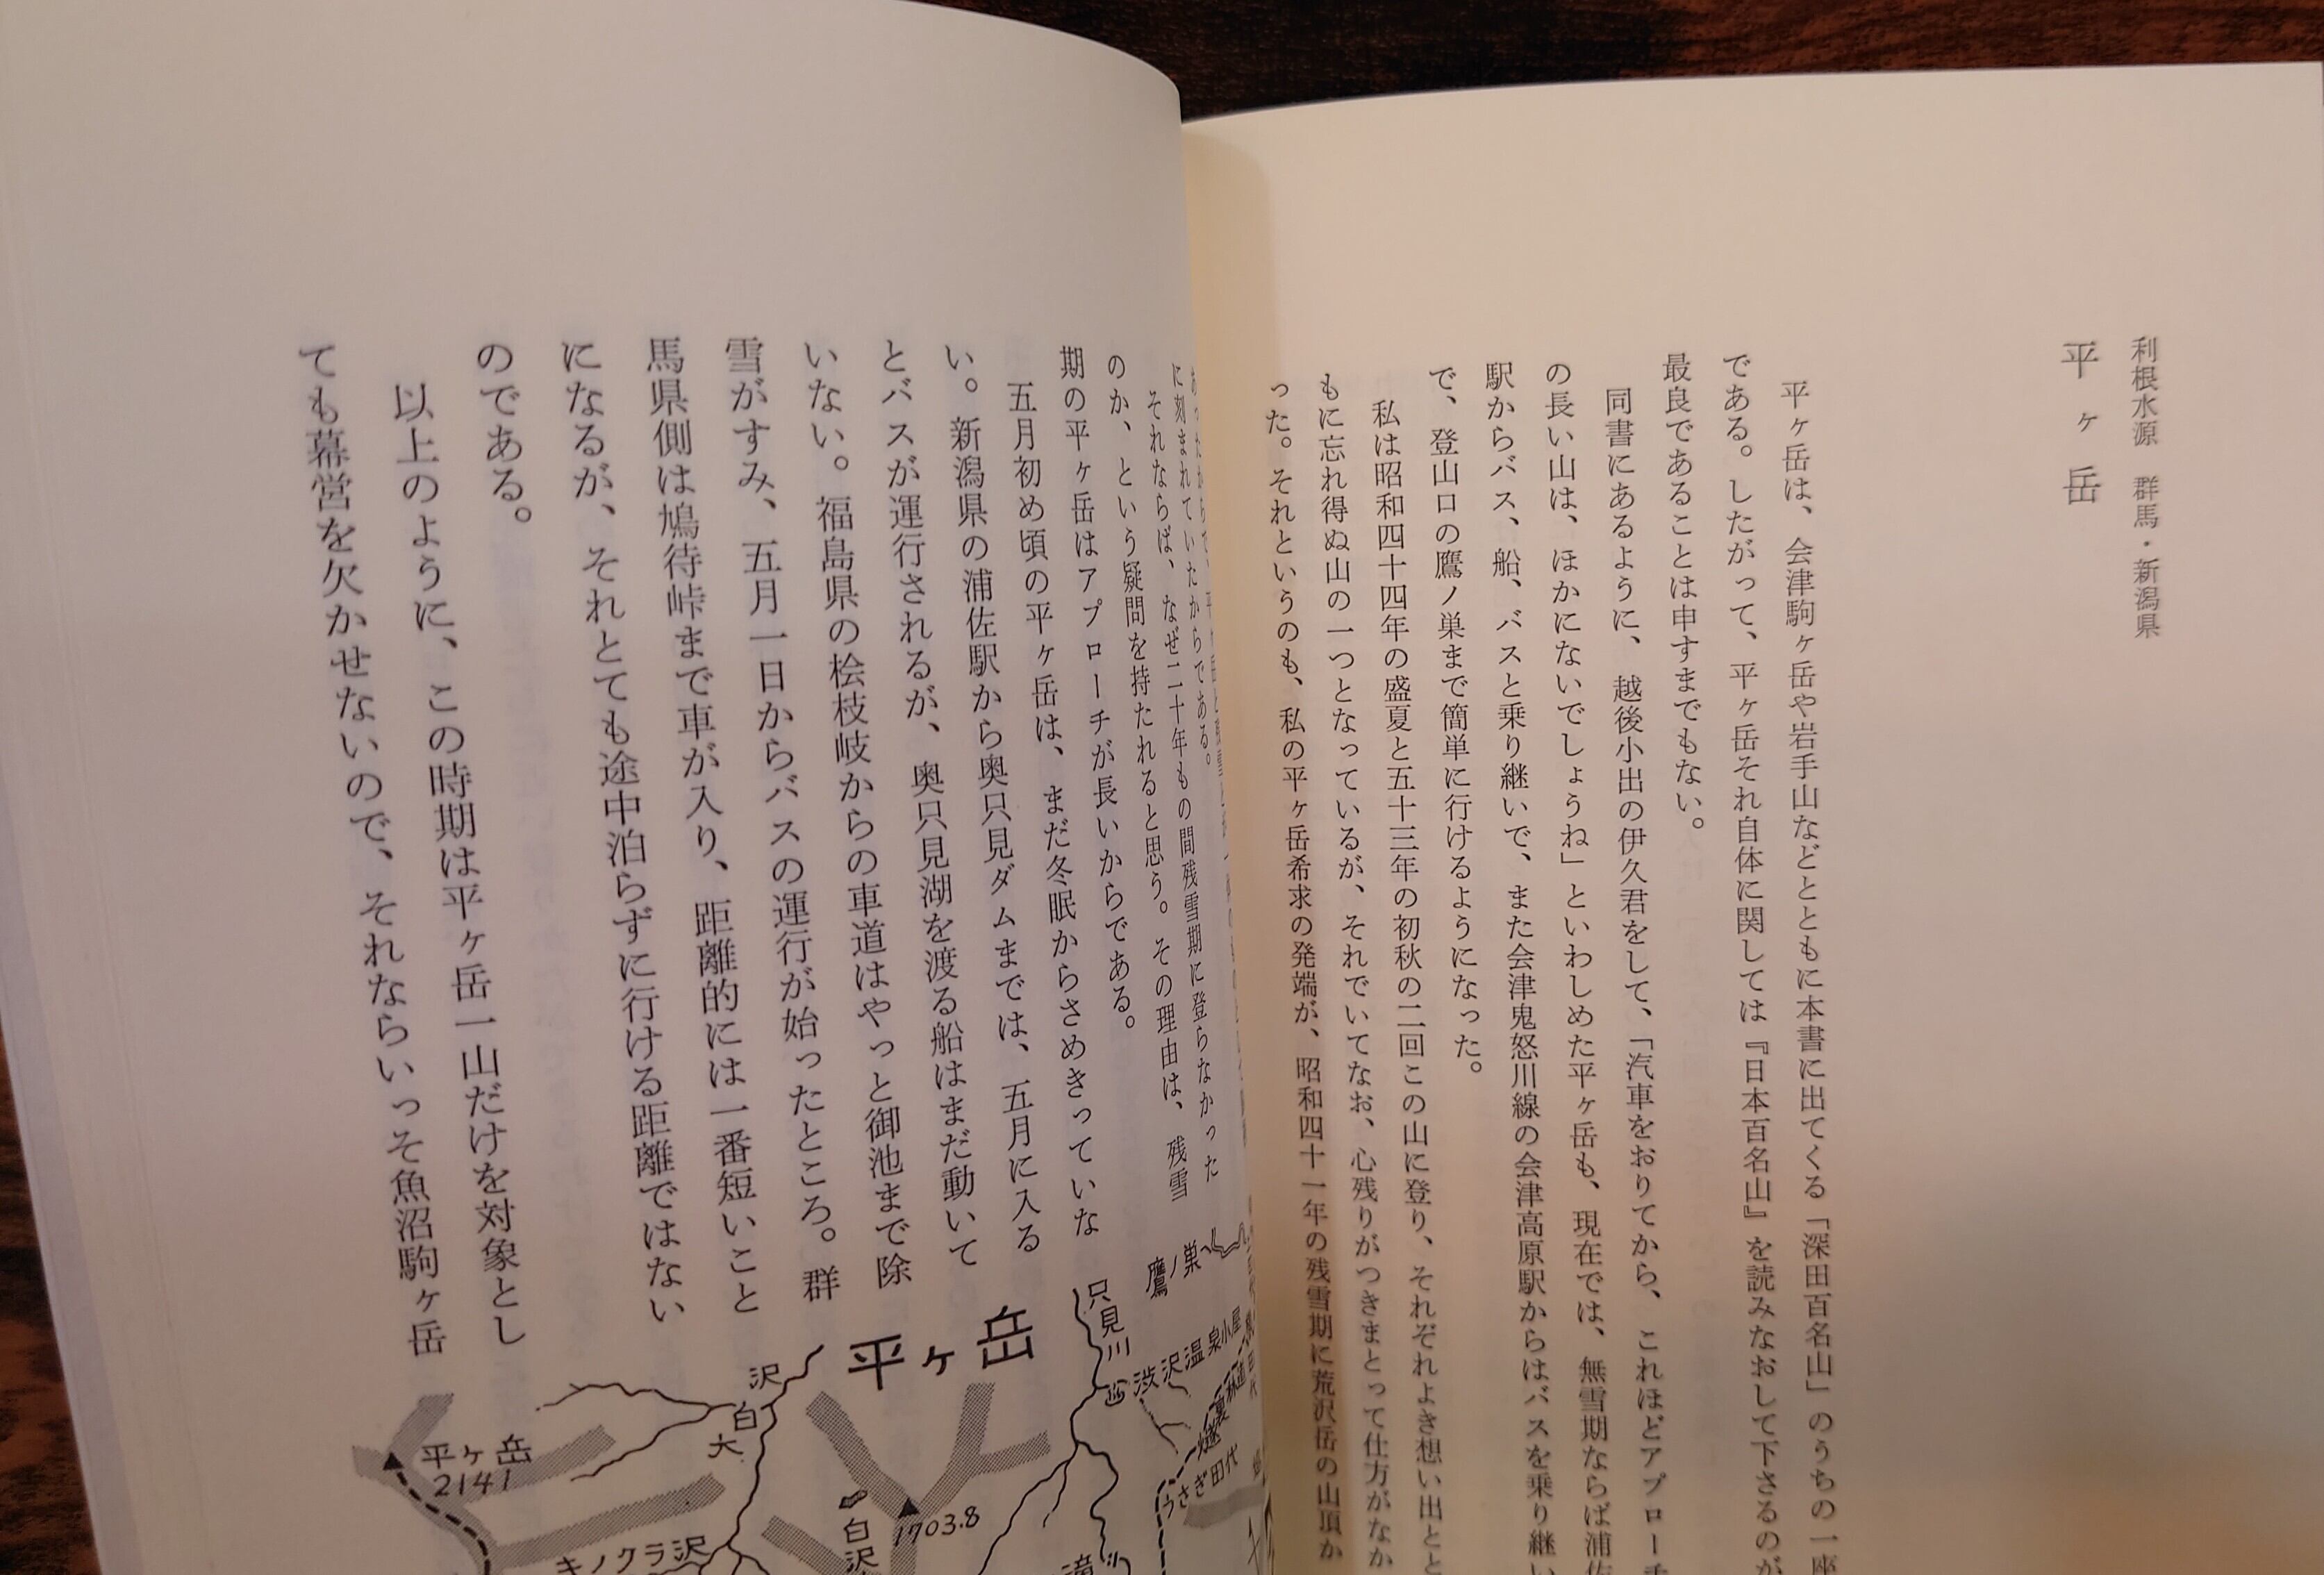 利根水源　群馬・新潟県
平ヶ岳
平ヶ岳は、会津駒ヶ岳や岩手山などとともに本書に出てくる「深田百名山」のうちの一座
である。したがって、平ヶ岳それ自体に関しては『日本百名山』を読みなおして下さるのが
最良であることは申すまでもない。
同書にあるように、越後小出の伊久君をして、「汽車をおりてから、これほどアプローチ
の長い山は、ほかにないでしょうね」といわしめた平ヶ岳も、現在では、無雪期ならば浦佐
駅からバス、船、バスと乗り継いで、また会津鬼怒川線の会津高原駅からはバスを乗り継い
で、登山口の鷹ノ巣まで簡単に行けるようになった。
私は昭和四十四年の盛夏と五十三年の初秋の二回この山に登り、それぞれよき想い出とと
もに忘れ得ぬ山の一つとなっているが、それでいてなお、心残りがつきまとって仕方がなか
った。それというのも、私の平ヶ岳希求の発端が、昭和四十一年の残雪期に荒沢岳の山頂か
に刻まれていたからである。
それならば、なぜ二十年もの間残雪期に登らなかった
のか、という疑問を持たれると思う。その理由は、残雪
期の平ヶ岳はアプローチが長いからである。
五月初め頃の平ヶ岳は、まだ冬眠からさめきっていな
い。新潟県の浦佐駅から奥只見ダムまでは、五月に入る
とバスが運行されるが、奥只見湖を渡る船はまだ動いて
いない。福島県の桧枝岐からの車道はやっと御池まで除
雪がすみ、五月一日からバスの運行が始ったところ。群
馬県側は鳩待峠まで車が入り、距離的には一番短いこと
になるが、それとても途中泊らずに行ける距離ではない
のである。
以上のように、この時期は平ヶ岳一山だけを対象とし
ても幕営を欠かせないので、それならいっそ魚沼駒ヶ岳
鷹ノ巣へ
只見川
渋沢温泉小屋
うさぎ田代
平ヶ岳
大白沢
平ヶ岳
2141
1703.8
白沢
キノクラ沢
滝